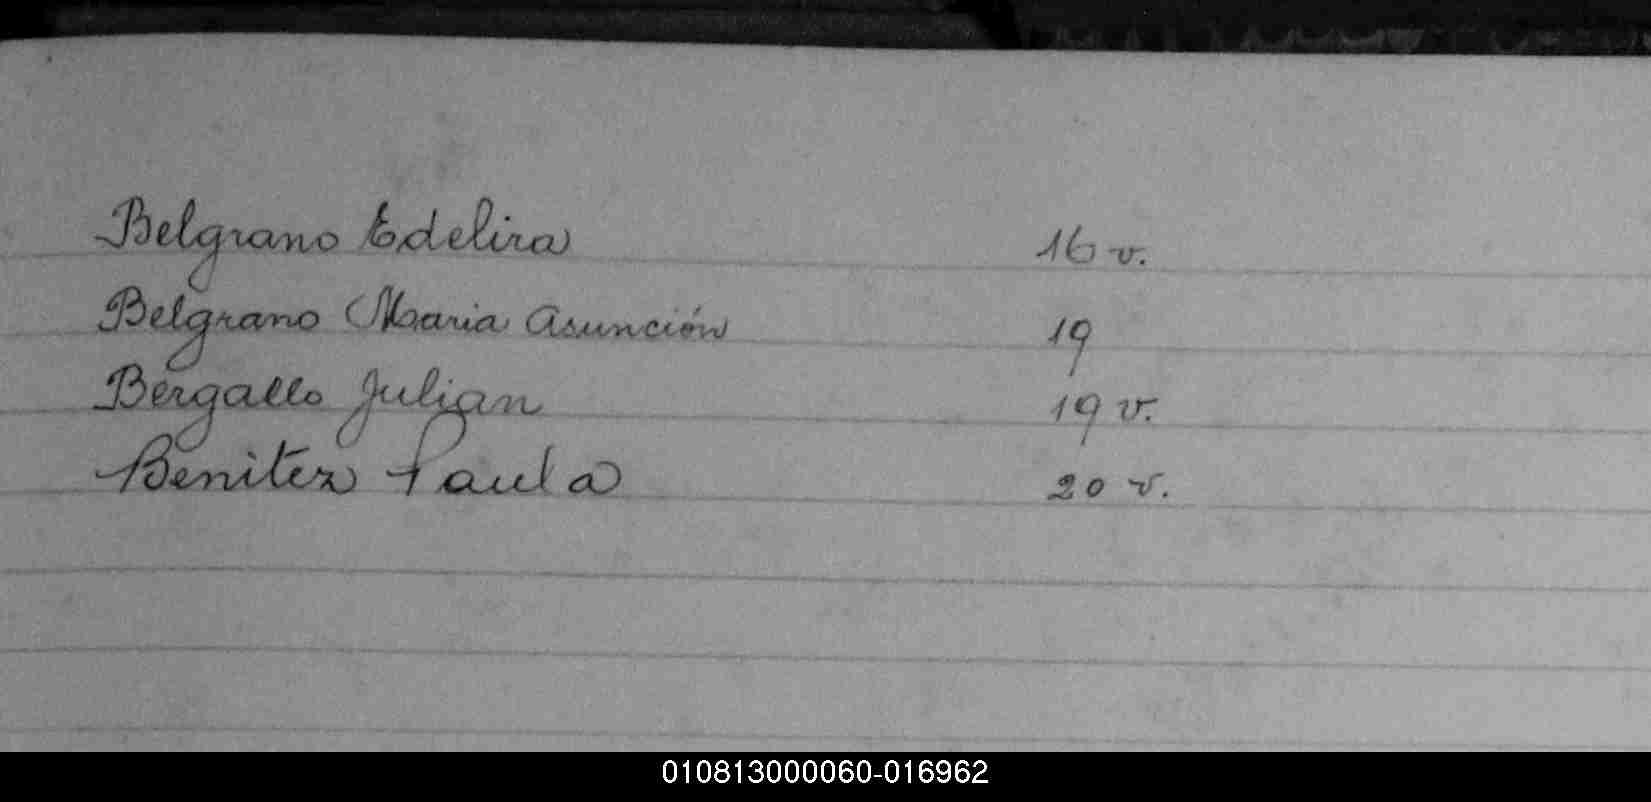 Belgrano Edelira 16 v.
Belgrano Maria Asunción 19
Bergallo Julian 19 v.
Benitez Paula 20 v.
010813000060-016962